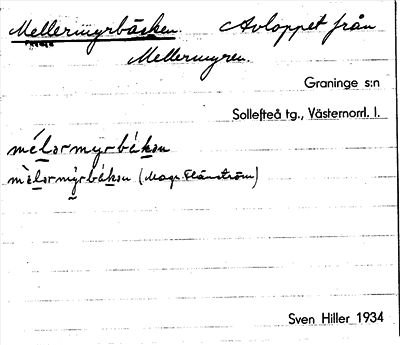 Mellermyrbäcken. Avloppet från
Mellermyren.
Graninge s:n
Sollefteå tg., Västernorrl. l.
mélormyrbákon
mèlormỳrbákon (Mags Flänström)
Sven Hiller 1934